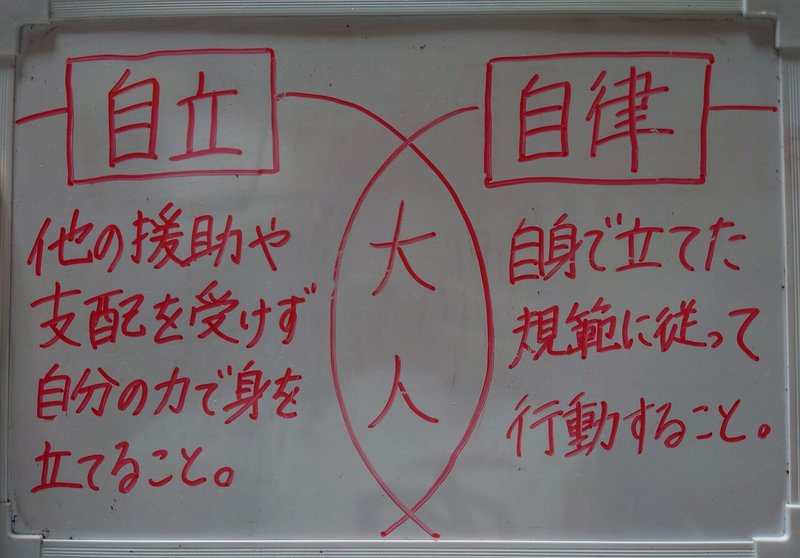 自立
他の援助や
支配を受けず
自分の力で身を
立てること。
大
人
自律
自身で立てた
規範に従って
行動すること。